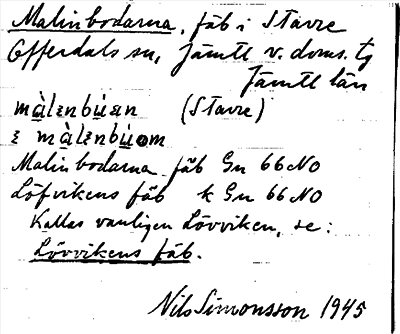 Malinbodarna, fäb i Stavre
Offerdals sn, Jämtl v. doms. tg
Jämtl län
màlɛnbùɐn (Stavre)
ɛ màlɛnbùom
Malinbodarna fäb Gn 66 NO
Löfvikens fäb k Gn 66 NO
Kallas vanligen Lövviken, se:
Lövvikens fäb.
Nils Simonsson 1945